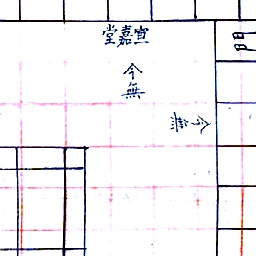 宣嘉堂
今無
今無